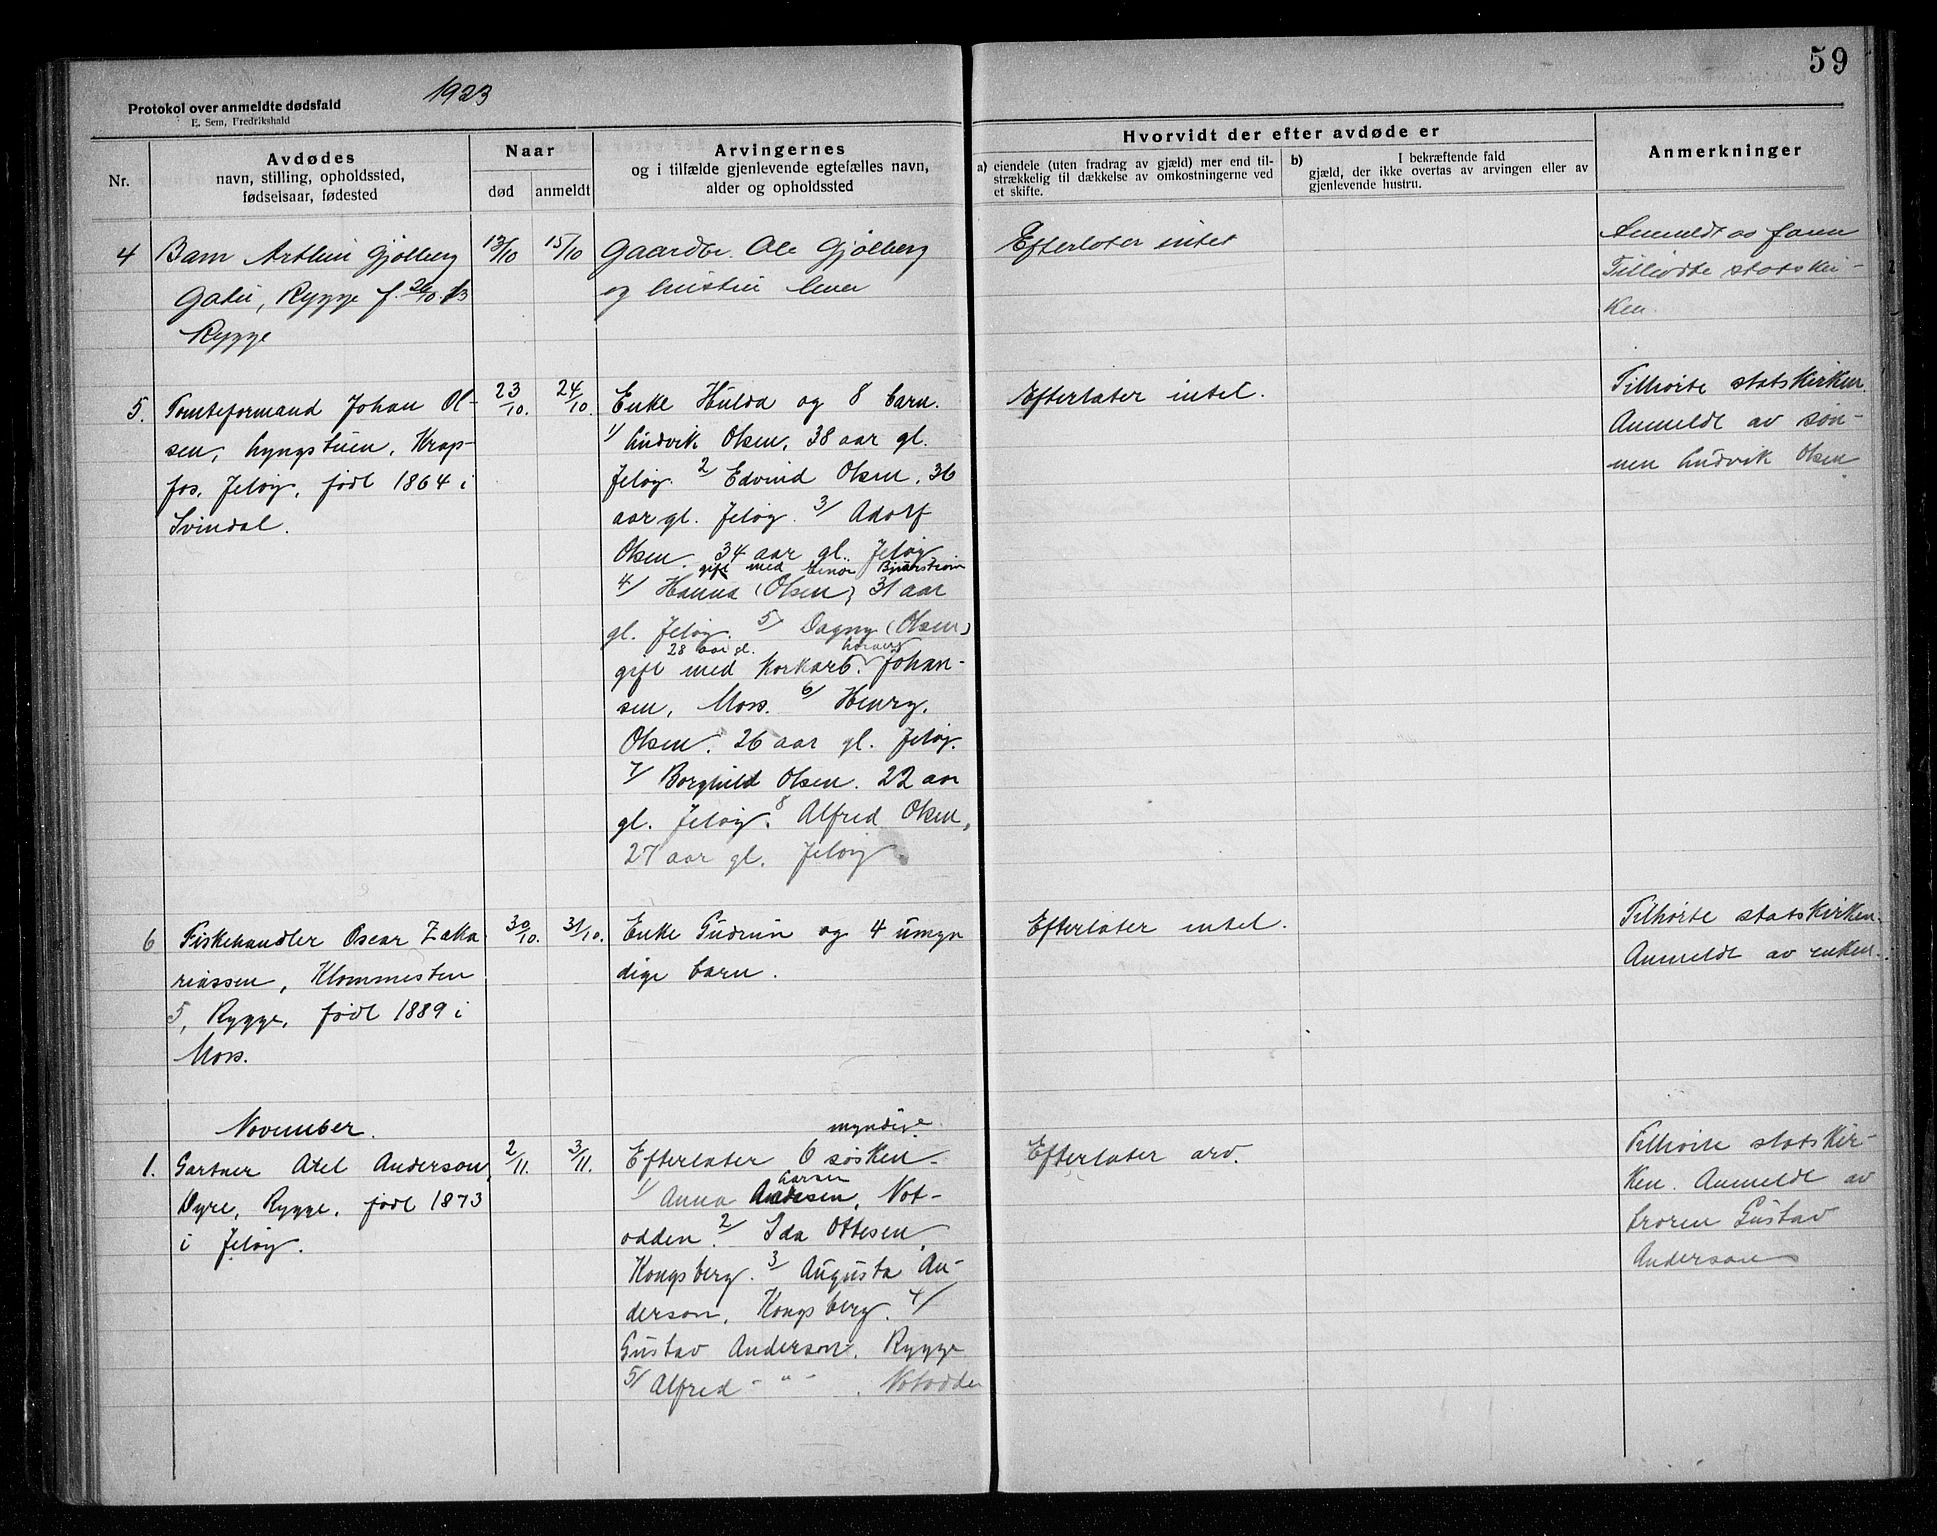 59
1923
Protokol over anmeldte dødsfald
E. Sem, Fredrikshald
Nr.
Avdødes
navn, stilling, opholdssted,
fødselsaar, fødested
Naar
død
anmeldt
Arvingernes
og i tilfælde gjenlevende egtefælles navn,
alder og opholdssted
Hvorvidt der efter avdøde er
a) eiendele (uten fradrag av gjæld) mer end til-
strækkelig til dækkelse av omkostningerne ved
et skifte.
b) I bekræftende fald
gjæld, der ikke overtas av arvingen eller av
gjenlevende hustru.
Anmerkninger
4
Barn Arthur Gjølberg
Rygge f. 13
Rygge
13/10
15/10
Gaardbr. Ole Gjølberg
og hustru
Efterlater intet
Anmeldt av faren
Tilhørte statskir-
ken.
5.
Tomteformand Johan Ol-
sen, Lyngstuen, Krap-
fos, Jeløy, født 1864 i
Svindal.
23/10.
24/10.
Enke Hulda og 8 barn.
1/ Ludvik Olsen, 38 aar gl.
Jeløy. 2 Edvind Olsen, 36
aar gl. Jeløy. 3/ Adolf
Olsen. 34 aar gl. Jeløy
gift med Einar
4/ Hanna (Olsen) 31 aar
gl. Jeløy. 5/ Dagny (Olsen)
28 aar gl.
gift med Korkarb. Johan-
sen, Moss. 6/ Henry.
Olsen. 26 aar gl. Jeløy.
7/ Borghild Olsen. 22 aar
gl. Jeløy. 8 Alfred Olsen,
27 aar gl. Jeløy
Efterlater intet.
Tilhørte statskirken.
Anmeldt av søn-
nen Ludvik Olsen
6
Fiskehandler Oscar Zaka-
riassen, Klommesten
5, Rygge, født 1889 i
Moss.
30/10.
31/10.
Enke Gudrun og 4 umyn
dige barn.
Efterlater intet.
Tilhørte statskirken.
Anmeldt av enken.
November.
1.
Gartner Axel Anderson,
Dyre, Rygge, født 1873
i Jeløy.
2/11.
3/11.
myndige
Efterlater 6 søsken-
Aarsen
1/ Anna Not-
odden. 2/ Ida Ottesen,
Kongsberg. 3/ Augusta An-
derson, Kongsberg. 4/
Gustav Anderson. Rygge
5/ Alfred - " - . Notodden
Efterlater arv.
Tilhørte statskir-
ken. Anmeldt av
broren Gustav
Anderson